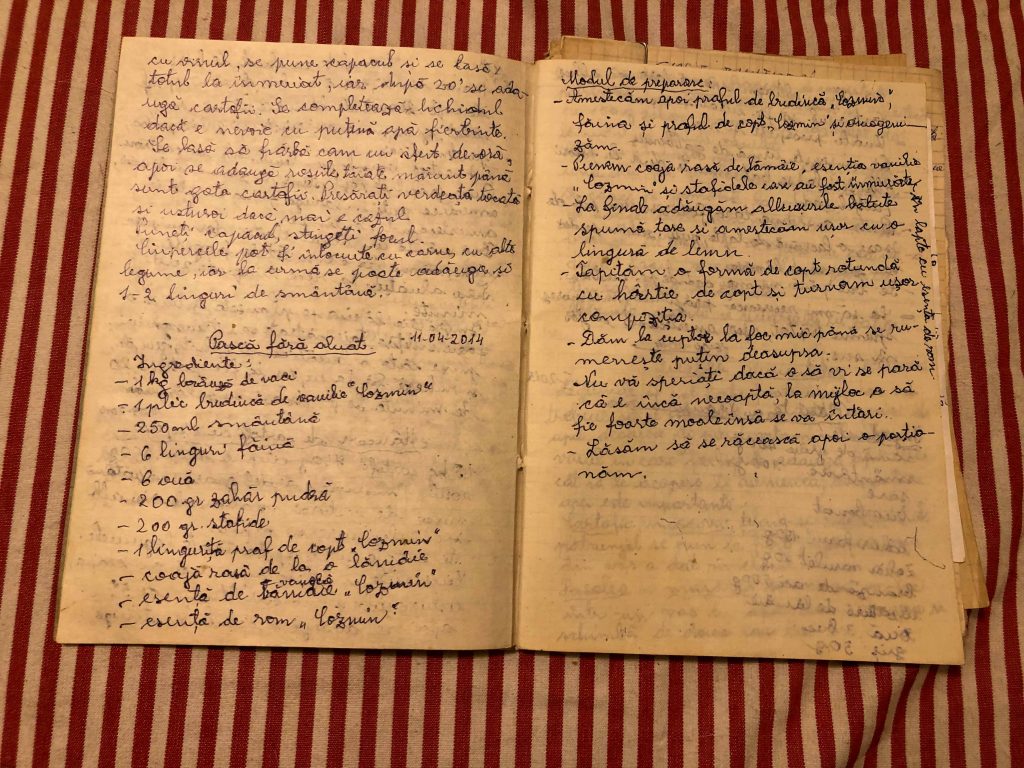 cu vinul, se pune capacul si se lasă
totul la înmuiat, iar după 20' se ada-
ugă cartofii. Se completează lichidul
dacă e nevoie cu puțină apă fierbinte.
Se lasă să fiarbă cam un sfert de oră,
apoi se adaugă roșiile tăiate mărunt până
sunt gata cartofii. Presărați verdeață tocată
si usturoi dacă mai e cazul.
Puneți capacul, stingeți focul.
Ciupercile pot fi înlocuite cu carne, cu alte
legume, iar la urmă se poate adăuga și
1-2 linguri de smântână.
Pască fără aluat. 11-04-2014
Ingrediente:
- 1 kg brânză de vaci
- 1 plic budincă de vanilie "Cozmin"
- 250 ml smântână
- 6 linguri făină
- 6 ouă
- 200 gr zahăr pudră
- 200 gr. stafide
- 1 linguriță praf de copt „Cozmin"
- coajă rasă de la o lămâie
- esență de vanilie „Cozmin"
- esență de rom „Cozmin".
Modul de preparare:
- Amestecăm apoi praful de budincă „Cozmin",
făina și praful de copt „Cozmin" și omogeni
zăm.
- Punem coajă rasă de lămâie, esența vanilie
„Cozmin" si stafidele care au fost înmuiate
în lapte cu esență de rom
- La final adăugăm albușurile bătute
spumă tare si amestecăm ușor cu o
lingură de lemn
- Tapităm o formă de copt rotundă
cu hârtie de copt și turnăm ușor
compoziția.
- Dăm la cuptor la foc mic până se ru-
menește puțin deasupra.
Nu vă speriați dacă o să vi se pară
că e încă necoaptă, la mijloc o să
fie foarte moale însă se va întări.
- Lăsăm să se răcească apoi o porțio-
năm.